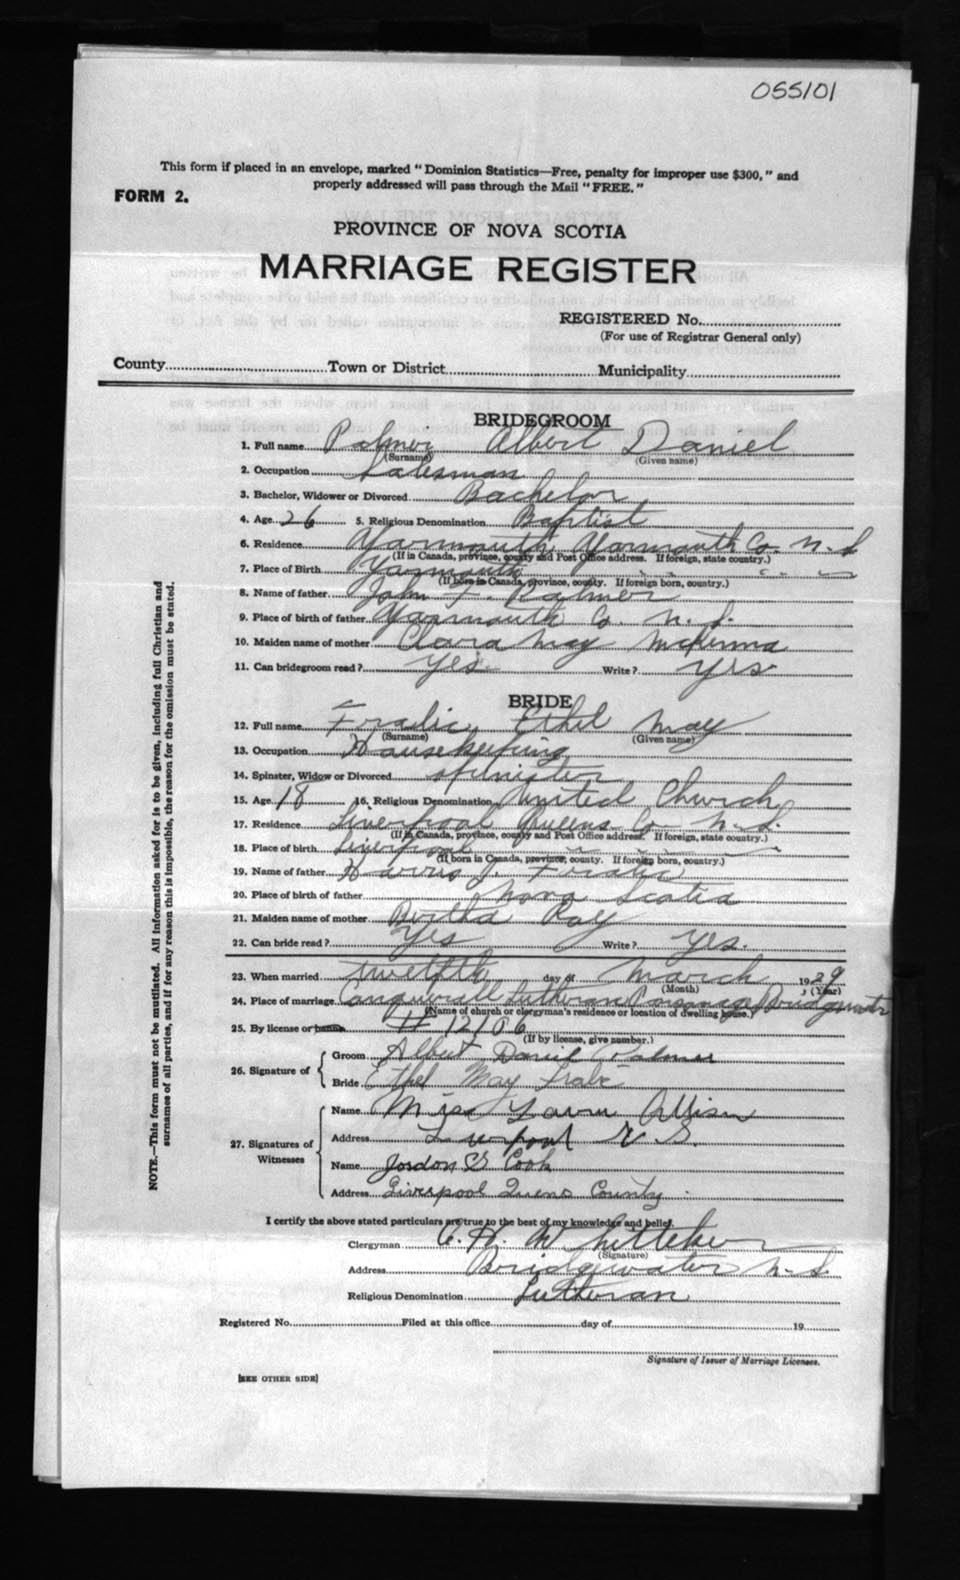 055101
This form if placed in an envelope, marked "Dominion Statistics—Free, penalty for improper use $300," and
properly addressed will pass through the Mail "FREE."
FORM 2.
PROVINCE OF NOVA SCOTIA
MARRIAGE REGISTER
REGISTERED No.
(For use of Registrar General only)
County Town or District Municipality
NOTE.—This form must not be mutilated. All information asked for is to be given, including full Christian and
surnames of all parties, and if for any reason this is impossible, the reason for the omission must be stated.
BRIDEGROOM
1. Full name Palmer Albert Daniel
(Surname) (Given name)
2. Occupation Salesman
3. Bachelor, Widower or Divorced Bachelor
4. Age 26 5. Religious Denomination Baptist
6. Residence Yarmouth Yarmouth Co. N.S
(If in Canada, province, county and Post Office address. If foreign, state country.)
7. Place of Birth Yarmouth " " "
(If born in Canada, province, county. If foreign born, country.)
8. Name of father John F. Palmer
9. Place of birth of father Yarmouth Co. N.S.
10. Maiden name of mother Clara May McKenna
11. Can bridegroom read? Yes Write? Yes
BRIDE
12. Full name Fralic Ethel May
(Surname) (Given name)
13. Occupation Housekeeping
14. Spinster, Widow or Divorced Spinster
15. Age 18 16. Religious Denomination United Church
17. Residence Liverpool Queens Co N.S.
(If in Canada, province, county and Post Office address. If foreign, state country.)
18. Place of birth Liverpool " " "
(If born in Canada, province, county. If foreign born, country.)
19. Name of father Harris J. Fralic
20. Place of birth of father Nova Scotia
21. Maiden name of mother Bertha Roy
22. Can bride read? Yes Write? Yes.
23. When married twelfth day of March 1929
(Month) (Year)
24. Place of marriage Lutheran Parsonage Bridgewater
(Name of church or clergyman's residence or location of dwelling house.)
25. By license or banns # 12106
(If by license, give number.)
26. Signature of
Groom Albert Daniel Palmer
Bride Ethel May Fralic
27. Signatures of
Witnesses
Name Miss Allison
Address Liverpool N.S.
Name Jordon Cook
Address Liverpool Queens County.
I certify the above stated particulars are true to the best of my knowledge and belief.
Clergyman C. H. Whitteker
(Signature)
Address Bridgewater N.S.
Religious Denomination Lutheran
Registered No. Filed at this office day of 19
Signature of Issuer of Marriage Licenses.
[SEE OTHER SIDE]